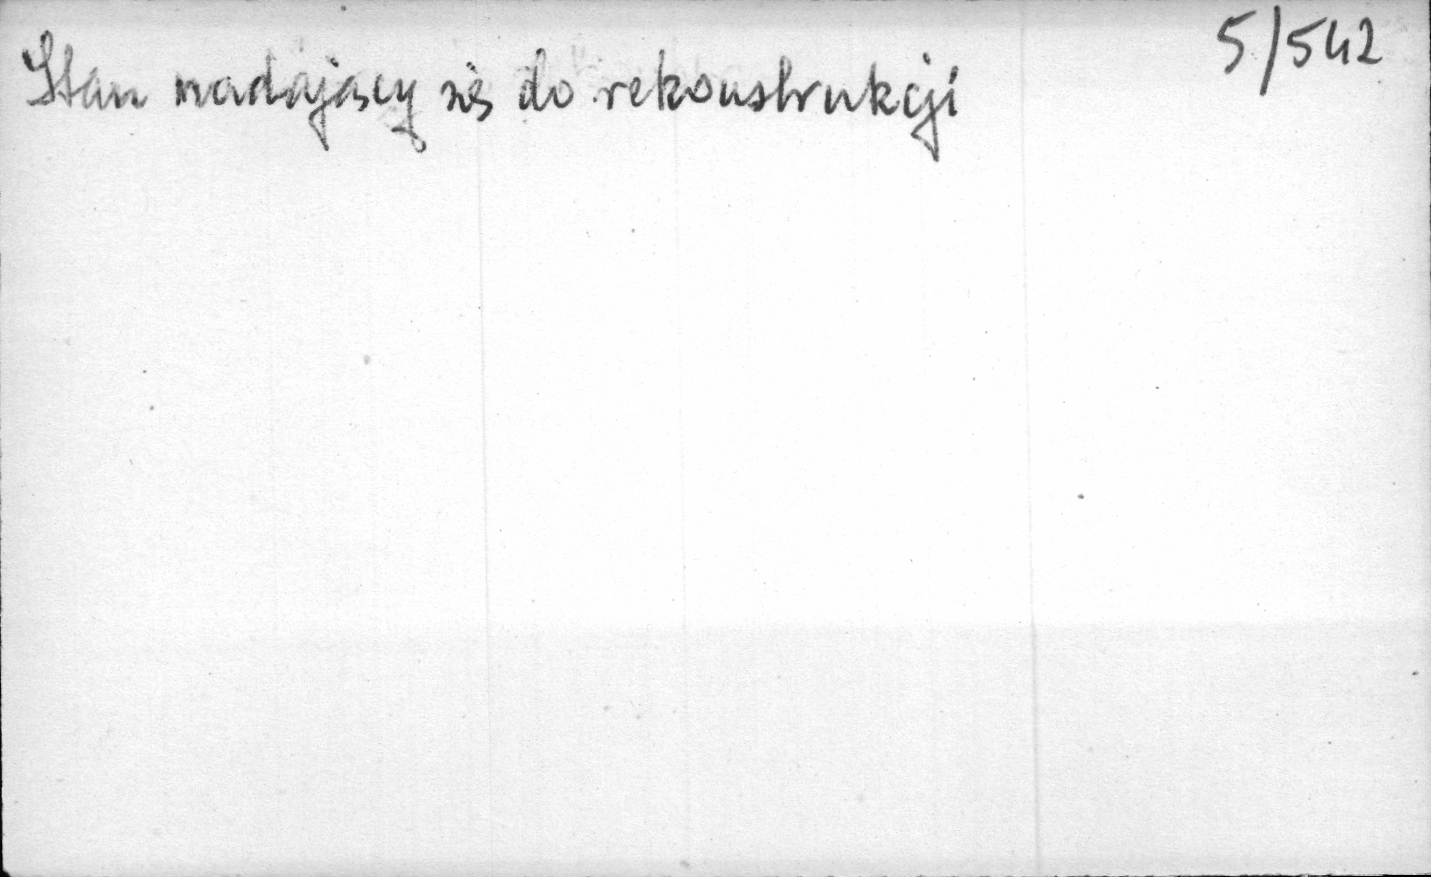 5/542
Stan nadający się do rekonstrukcji